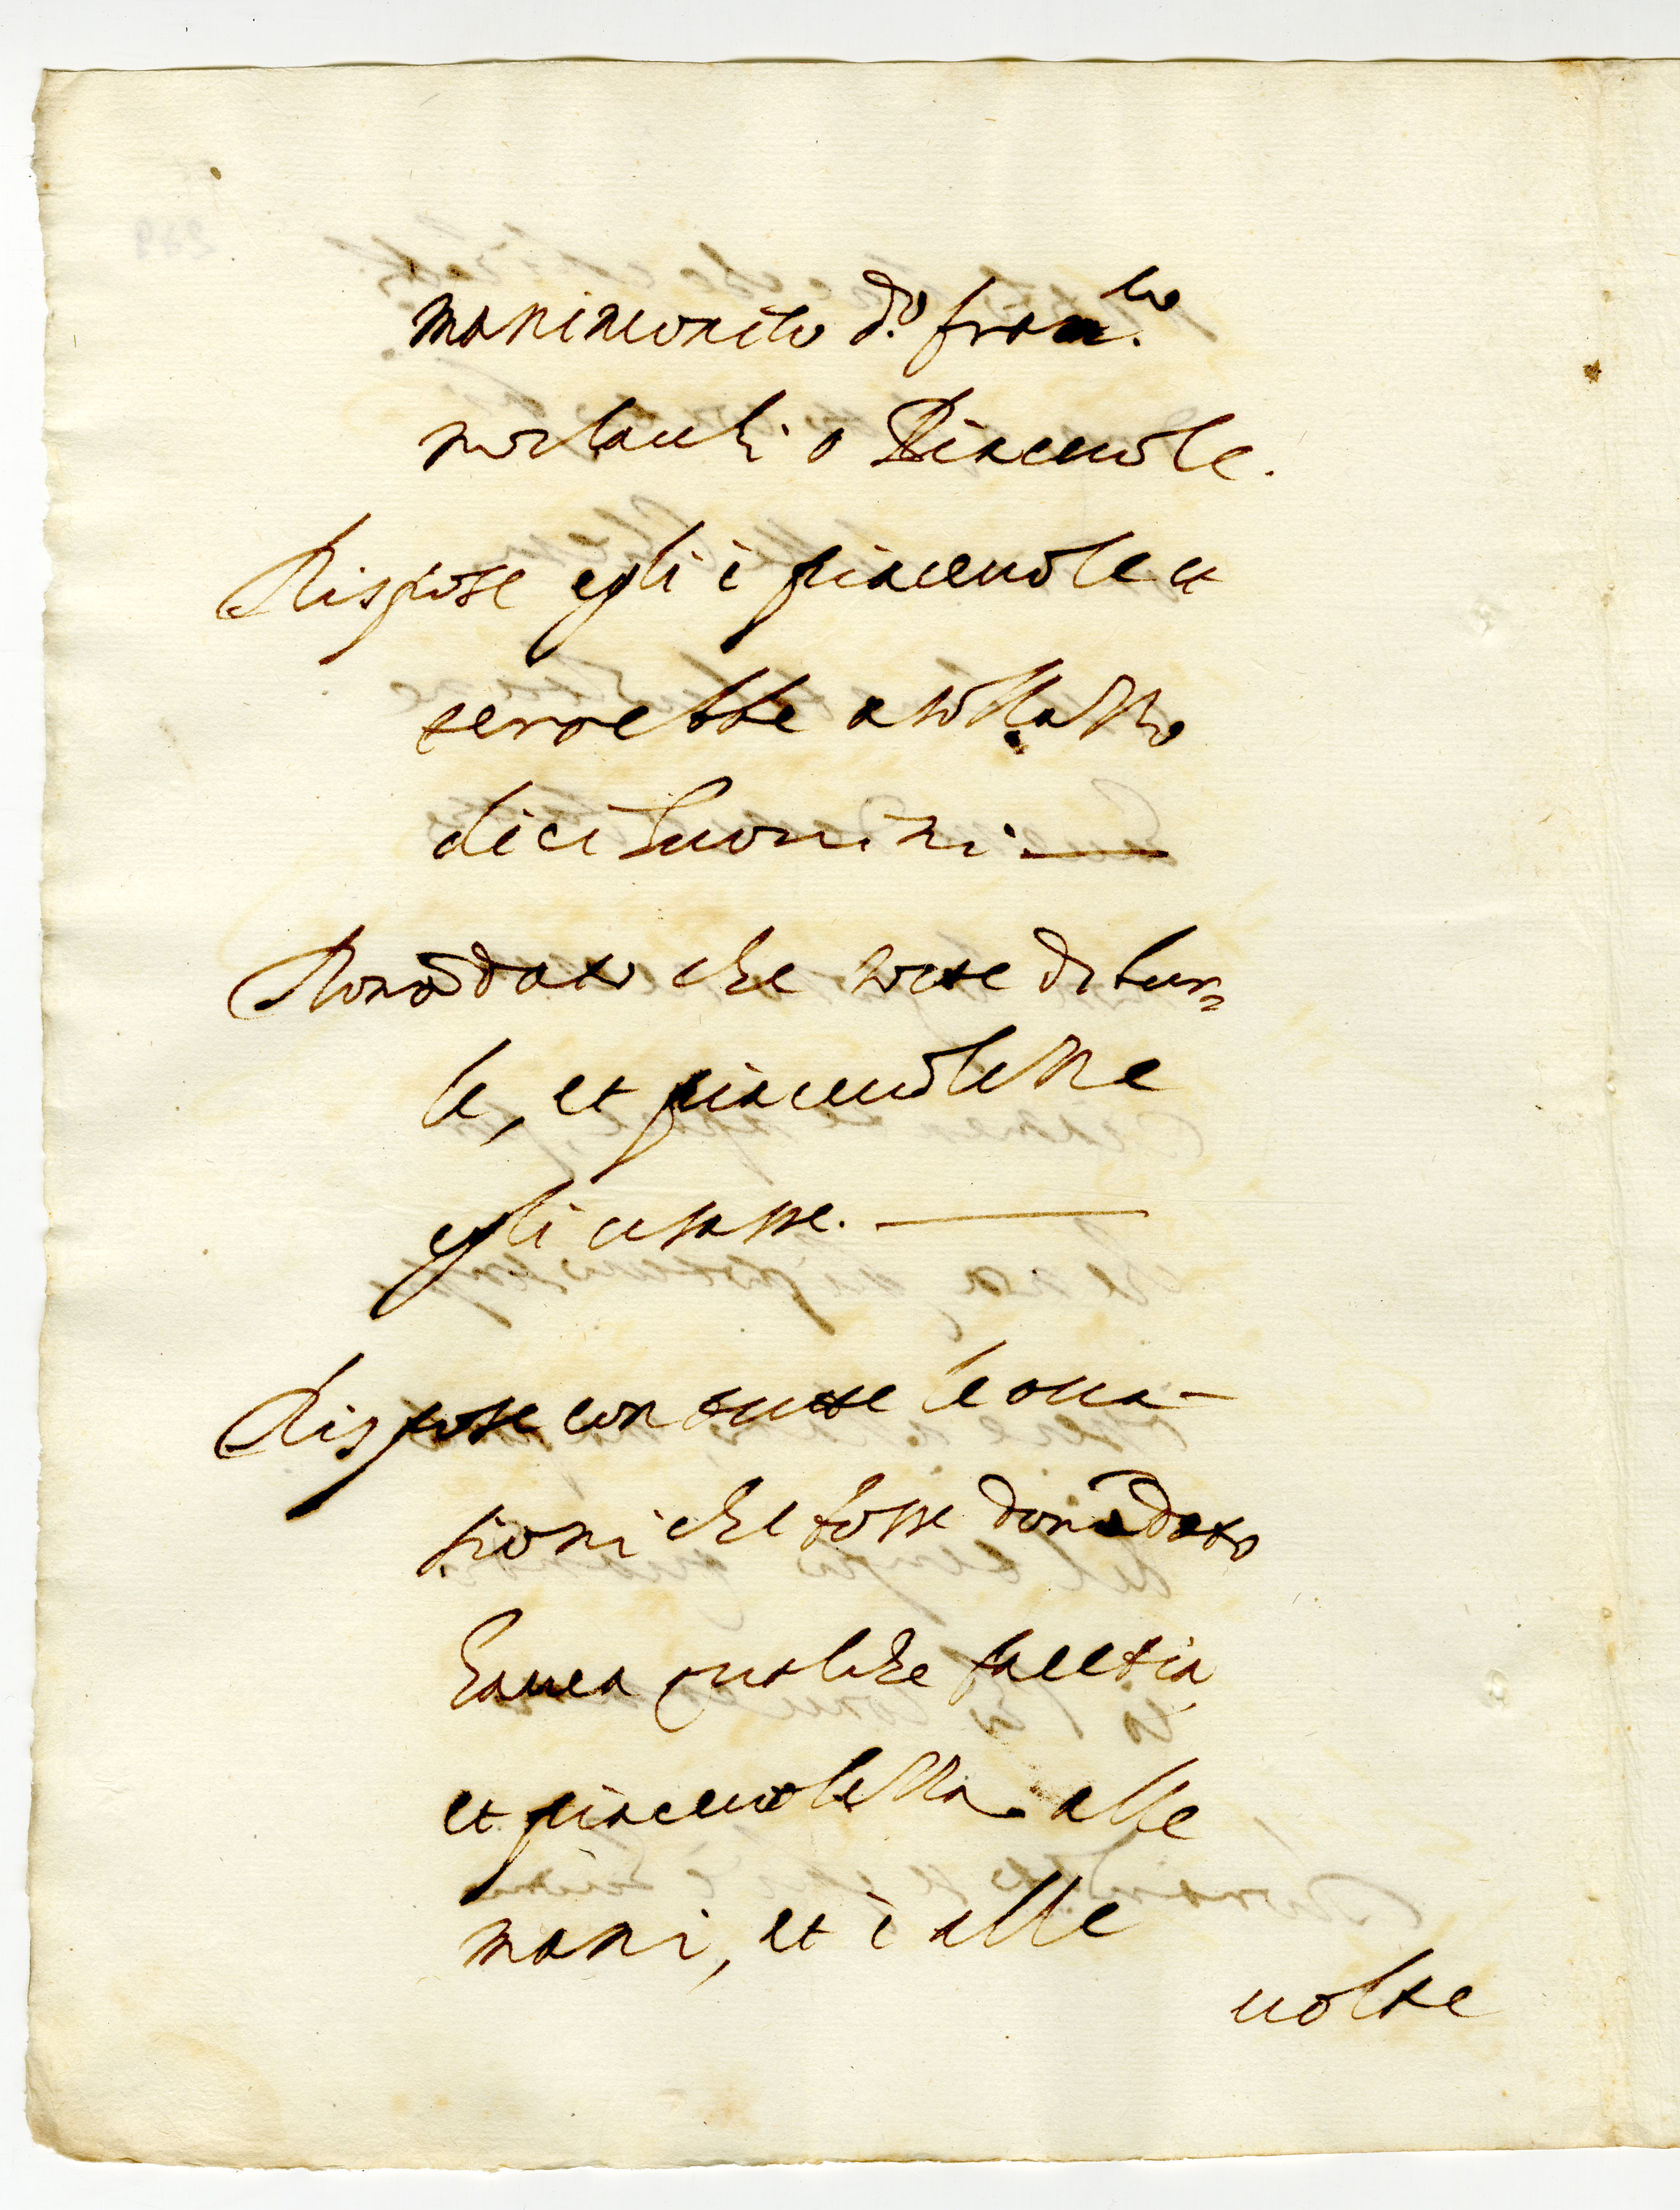 maninconico d.º fran.co
o Piaceuole.
Rispose egli è piaceuole e
terrebbe a sollazzo
dieci huomini.
Domãdato che sorte di bur=
le, et piaceuolezze
egli usasse.
Rispose con tutte le occa-
sioni che fosse domãdato
hauea qualche facetia
et piaceuolezza alle
mani, et è alle
uolte